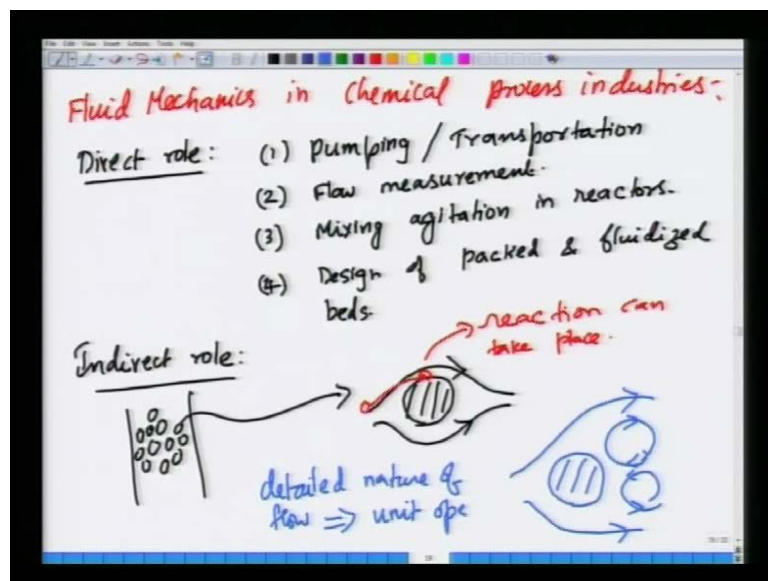 File Edit View Insert Actions Tools Help
Fluid Mechanics in Chemical process industries:
Direct role: (1) Pumping / Transportation
(2) Flow measurement.
(3) Mixing agitation in reactors.
(4) Design of packed & fluidized
beds.
Indirect role:
reaction can
take place.
detailed nature of
flow ⇒ unit ope